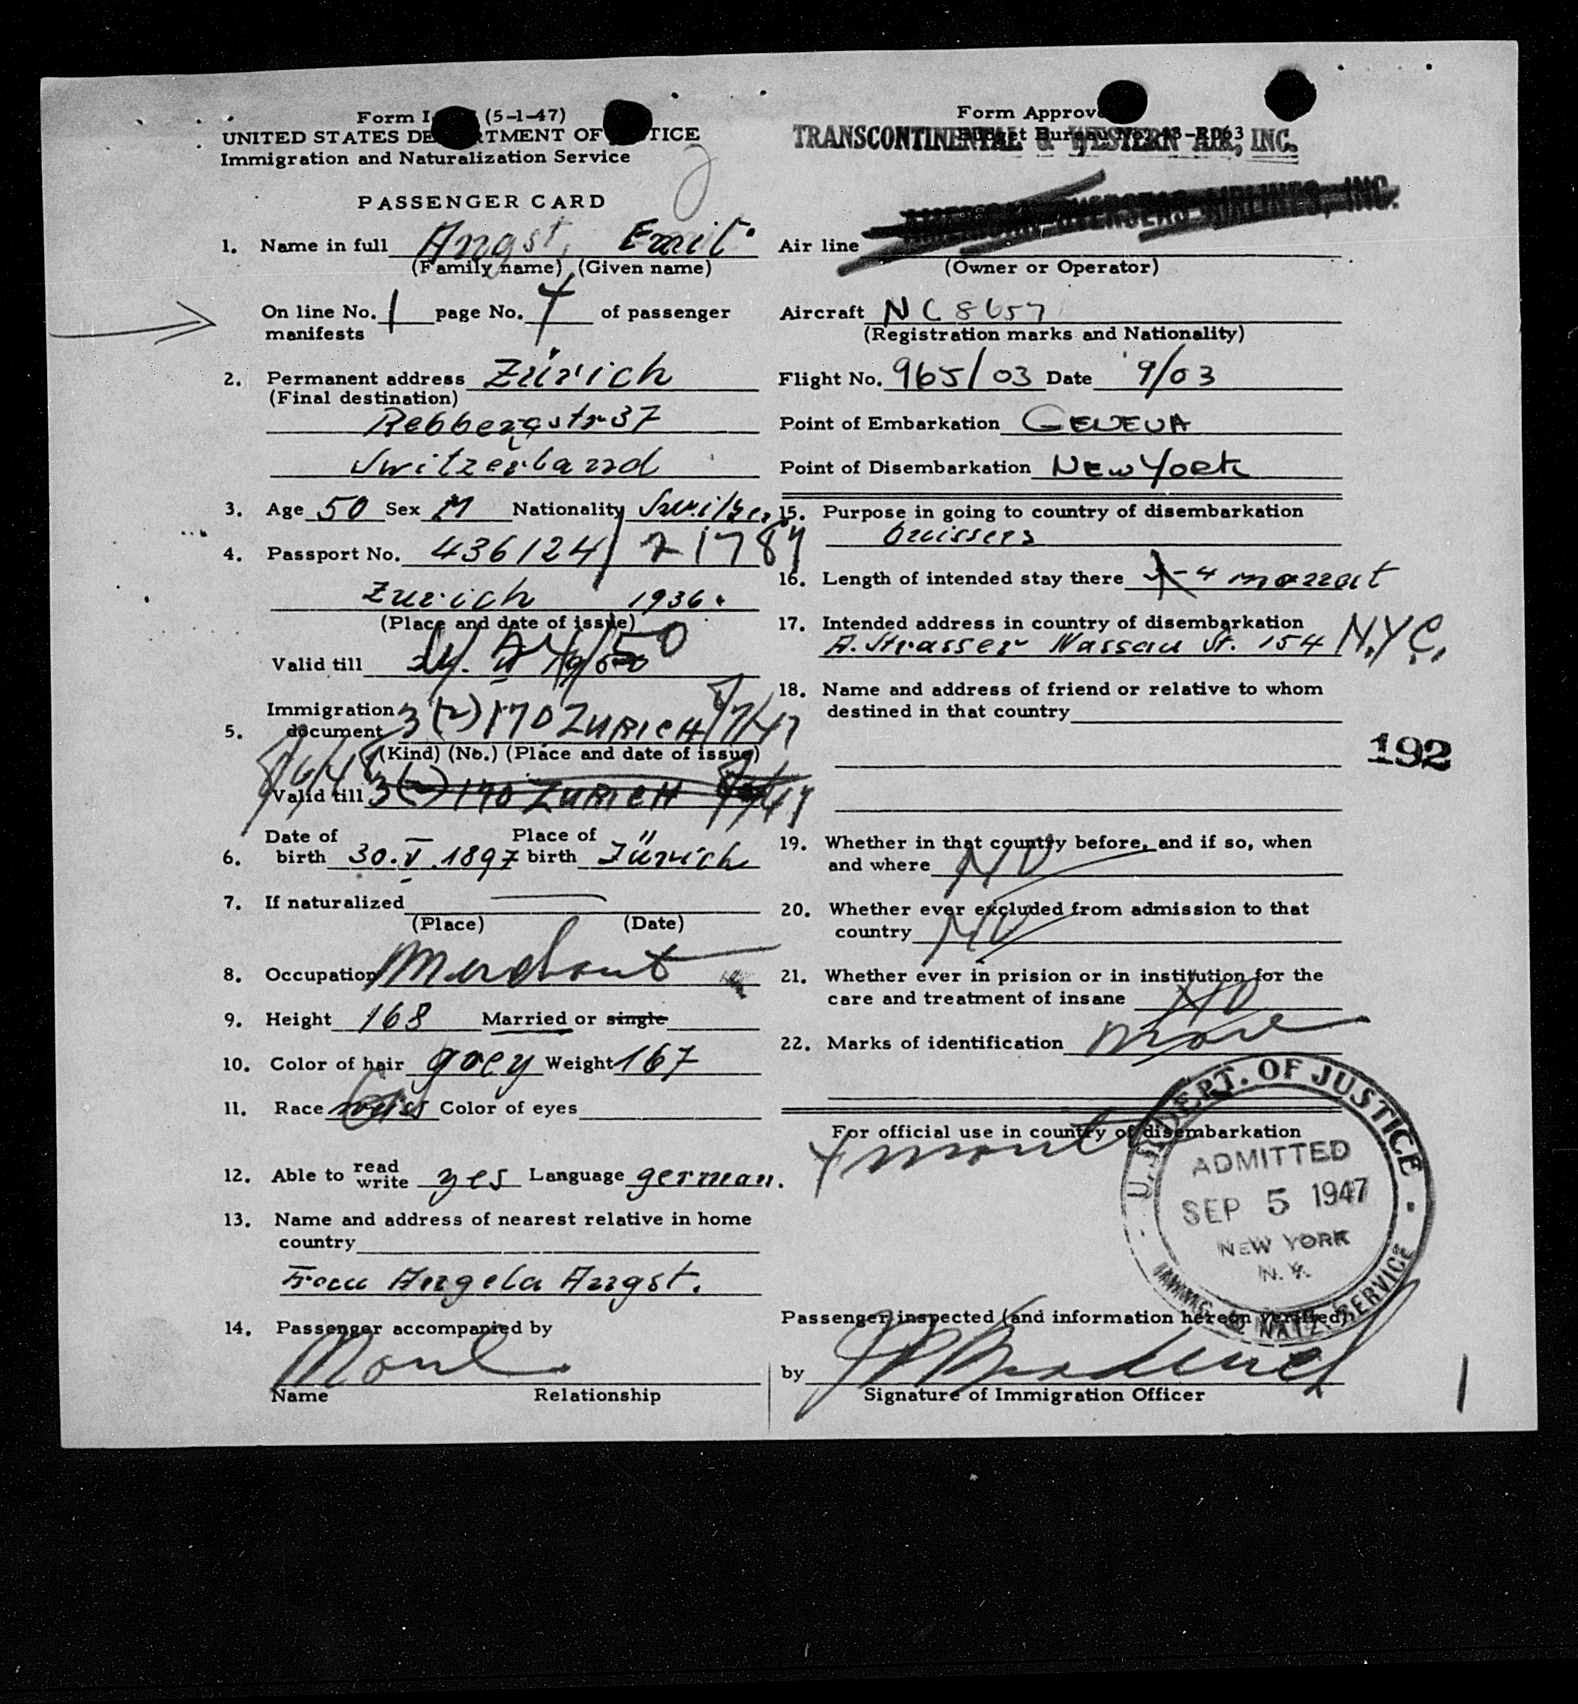 Form I (5-1-47)
UNITED STATES DE RTMENT OF TICE
Immigration and Naturalization Service
PASSENGER CARD
1. Name in full Angst, Emil
(Family name) (Given name)
On line No. 1 page No. 4 of passenger
manifests
2. Permanent address Zürich
(Final destination)
Rebbergstr 37
Switzerland
3. Age 50 Sex M Nationality
4. Passport No. 436124/21784
Zurich 1936.
(Place and date of issue)
Valid till
Immigration
5. document 3(2) 170 ZURICH
(Kind) (No.) (Place and date of issue)
Valid till 3(2) 170 ZURICH
Date of Place of
6. birth 30.V.1897 birth Zürich
7. If naturalized
(Place) (Date)
8. Occupation Merchant
9. Height 168 Married or single
10. Color of hair grey Weight 167
11. Race Color of eyes
12. Able to read write yes Language german.
13. Name and address of nearest relative in home
country
Frau Angela Angst.
14. Passenger accompanied by
None
Name Relationship
Form Approve
Budget Bureau No. 43-R063
TRANSCONTINENTAL & WESTERN AIR, INC.
AMERICAN OVERSEAS AIRLINES, INC.
Air line
(Owner or Operator)
Aircraft NC 8657
(Registration marks and Nationality)
Flight No. 965/03 Date 9/03
Point of Embarkation GENEVA
Point of Disembarkation NEW YORK
15. Purpose in going to country of disembarkation
16. Length of intended stay there
17. Intended address in country of disembarkation
A. Strasser Nassau St. 154 N.Y.C.
18. Name and address of friend or relative to whom
destined in that country
192
19. Whether in that country before, and if so, when
and where NO
20. Whether ever excluded from admission to that
country NO
21. Whether ever in prision or in institution for the
care and treatment of insane NO
22. Marks of identification None
For official use in country of disembarkation
U.S. DEPT. OF JUSTICE
ADMITTED
SEP 5 1947
NEW YORK
N.Y.
IMMIG. & NATZ. SERVICE
Passenger inspected (and information hereon verified)
by
Signature of Immigration Officer